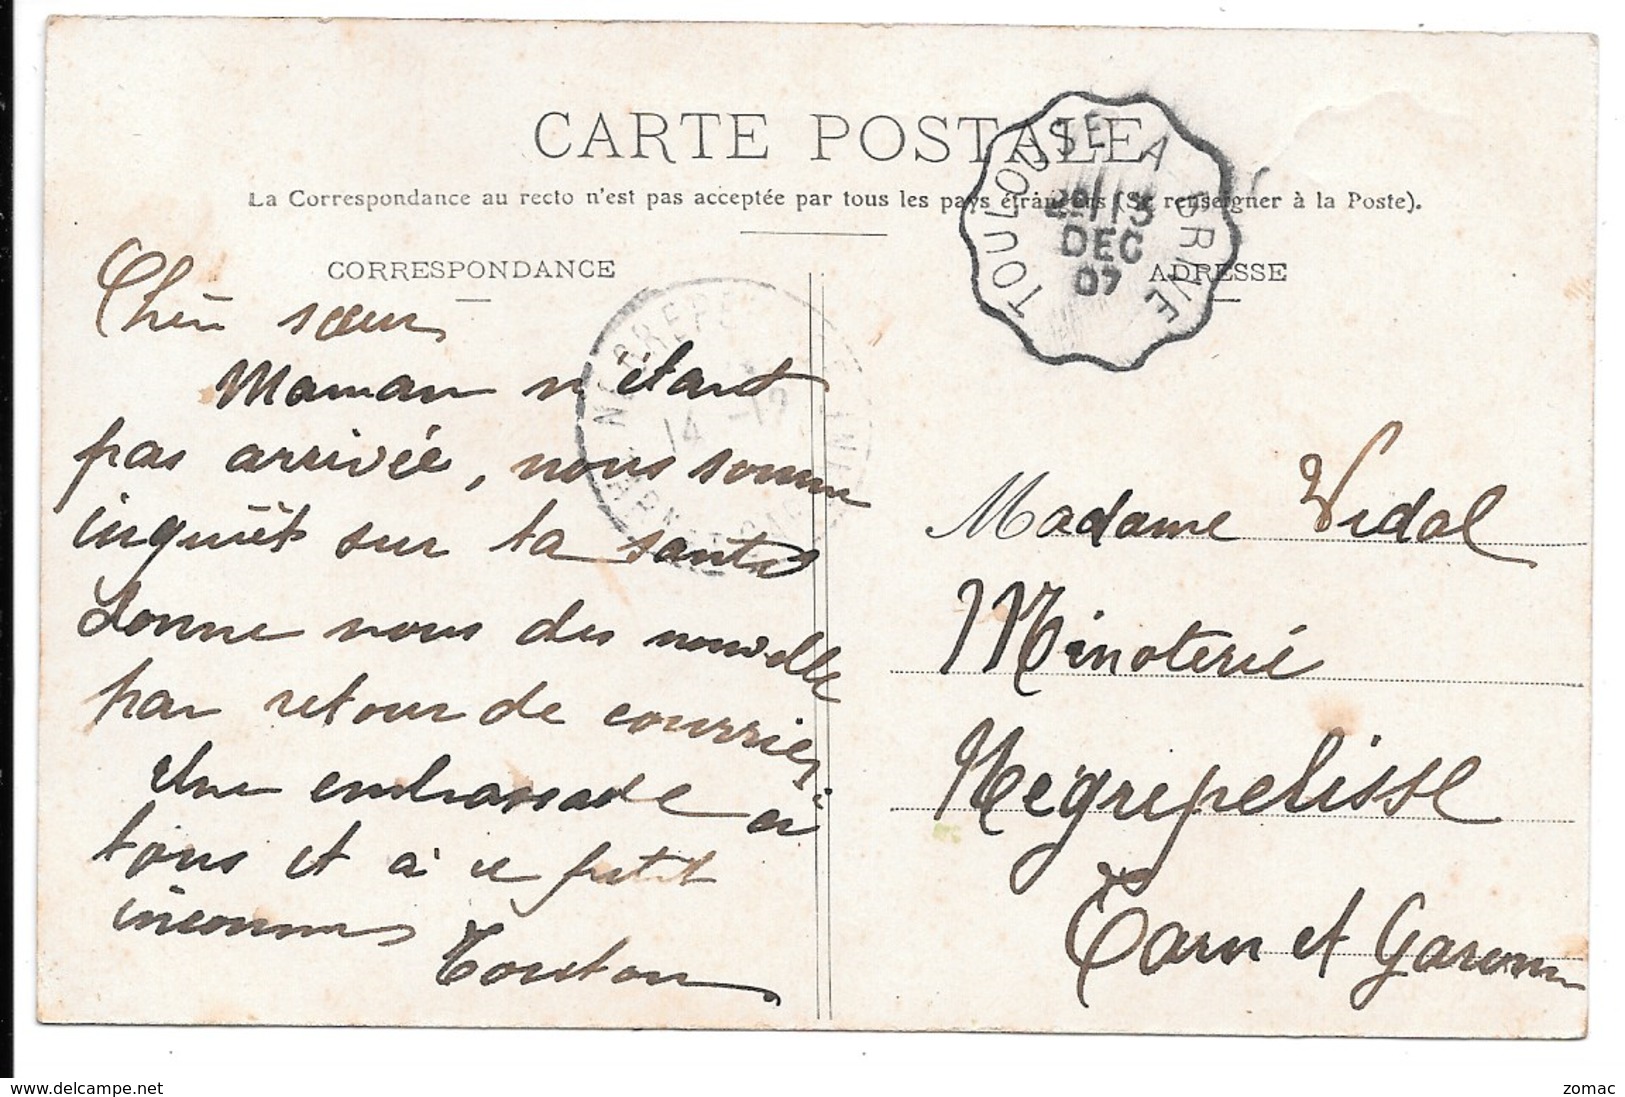 CARTE POSTALE
La Correspondance au recto n'est pas acceptée par tous les pays étrangers (Se renseigner à la Poste).
CORRESPONDANCE
Chère sœur
Maman n'étant
pas arrivée, nous somme
inquièt sur ta santé
donne nous des nouvelle
par retour de courrier
Une embrassade à
tous et à ce petit
inconnu
Touton
ADRESSE
Madame Vidal
Minoterie
Négrepelisse
Tarn et Garonne
TOULOUSE A BRIVE
13
DEC
07
NEGREPE
14 -12
www.delcampe.net
zomac